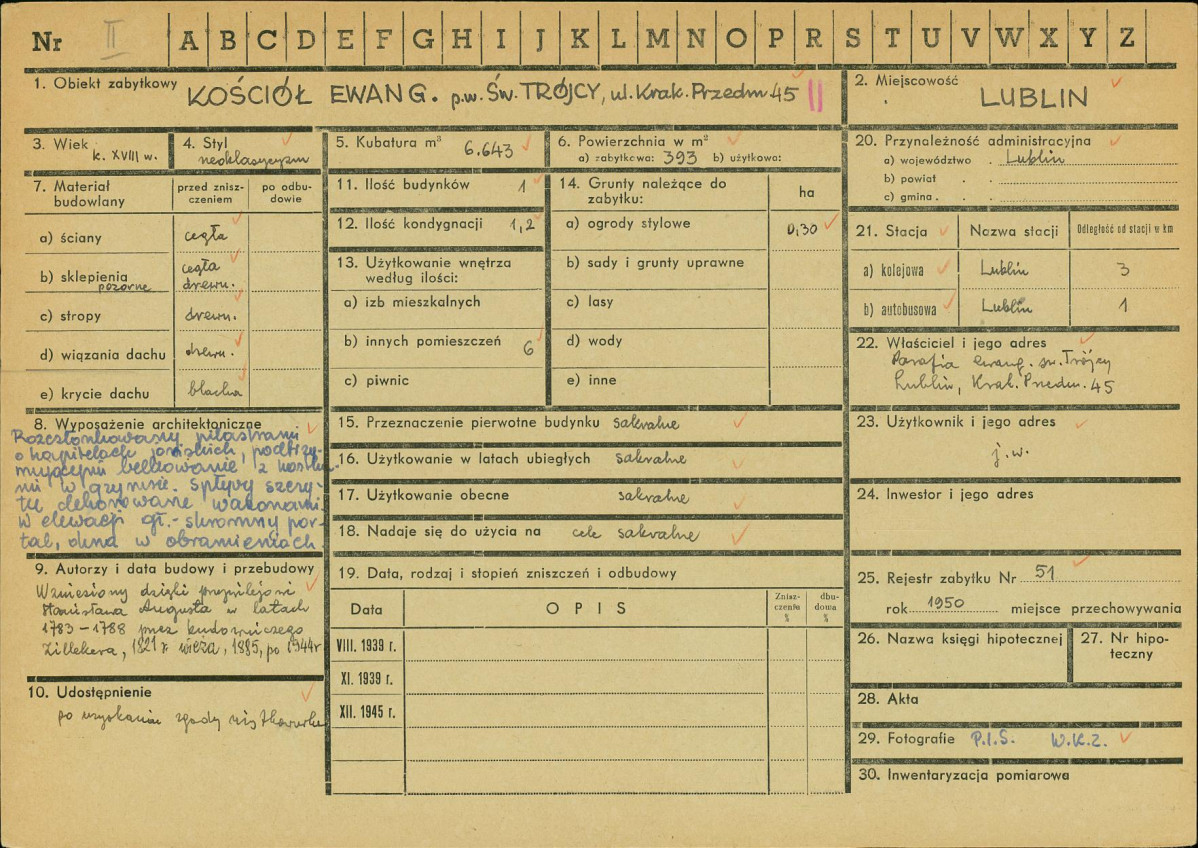 Nr II A B C D E F G H I J K L M N O P R S T U V W X Y Z
1. Obiekt zabytkowy KOŚCIÓŁ EWANG. p.w. ŚW. TRÓJCY, ul. Krak. Przedm 45 ||
2. Miejscowość
LUBLIN
3. Wiek
k. XVIII w.
4. Styl
neoklasycyzm
5. Kubatura m³ 6.643
6. Powierzchnia w m²
a) zabytkowa: 393 b) użytkowa:
7. Materiał budowlany
przed zniszczeniem
po odbudowie
a) ściany cegła
b) sklepienia cegła
pozorne drewn.
c) stropy drewn.
d) wiązania dachu drewn.
e) krycie dachu blacha
8. Wyposażenie architektoniczne
Rozczłonkowany pilastrami
o kapitelach jońskich, podtrzy-
mującymi belkowanie z kostka-
mi w gzymsie. Spływy szczy-
tu dekorowane wazonami.
W elewacji gł.- skromny por-
tal, okna w obramieniach
9. Autorzy i data budowy i przebudowy
Wzniesiony dzięki przywilejowi
Stanisława Augusta w latach
1783 – 1788 przez budowniczego
Zillchera, 1821 r wieża, 1885, po 1944r
10. Udostępnienie
po uzyskaniu zgody użytkownika
11. Ilość budynków 1
12. Ilość kondygnacji 1,2
13. Użytkowanie wnętrza
według ilości:
a) izb mieszkalnych
b) innych pomieszczeń 6
c) piwnic
14. Grunty należące do
zabytku:
ha
a) ogrody stylowe 0,30
b) sady i grunty uprawne
c) lasy
d) wody
e) inne
15. Przeznaczenie pierwotne budynku sakralne
16. Użytkowanie w latach ubiegłych sakralne
17. Użytkowanie obecne sakralne
18. Nadaje się do użycia na cele sakralne
19. Data, rodzaj i stopień zniszczeń i odbudowy
Data
OPIS
Znisz-
czenie
%
dbu-
dowa
%
VIII. 1939 r.
XI. 1939 r.
XII. 1945 r.
20. Przynależność administracyjna
a) województwo . Lublin
b) powiat . .
c) gmina . . .
21. Stacja
Nazwa stacji
Odległość od stacji w km
a) kolejowa Lublin 3
b) autobusowa Lublin 1
22. Właściciel i jego adres
Parafia ewang. św. Trójcy
Lublin, Krak. Przedm. 45
23. Użytkownik i jego adres
j.w.
24. Inwestor i jego adres
25. Rejestr zabytku Nr 51
rok 1950 miejsce przechowywania
26. Nazwa księgi hipotecznej
27. Nr hipo-
teczny
28. Akta
29. Fotografie P.I.S. W.K.Z.
30. Inwentaryzacja pomiarowa